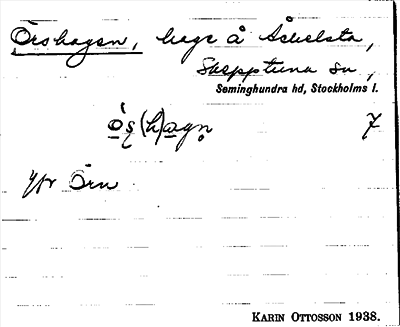 Örshagen, hage å Åshelsta,
Skepptuna sn,
Seminghundra hd, Stockholms l.
ó̱ș(h)a̱gn̥ 7
Yfr Örn
KARIN OTTOSSON 1938.